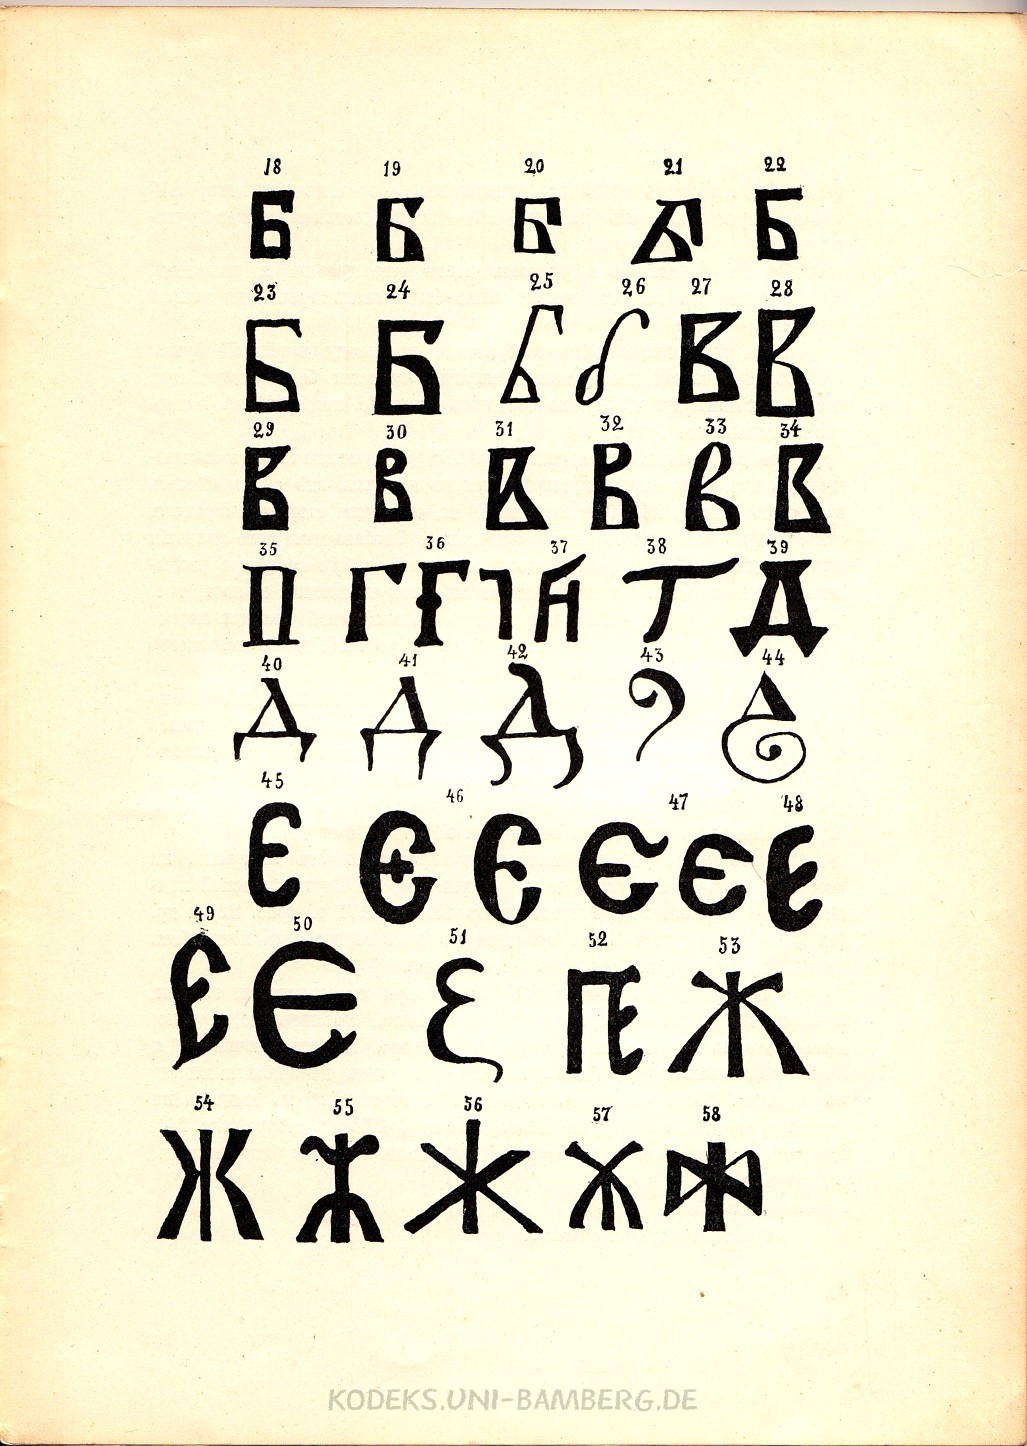 18 19 20 21 22
Б Б Б Б Б
23 24 25 26 27 28
Б Б Б б В В
29 30 31 32 33 34
В В В В В В
35 36 37 38 39
П Г Г Д
40 41 42 43 44
Д Д Д
45 46 47 48
Є Є Є Є Є Є
49 50 51 52 53
Є Є ПЄ Ж
54 55 56 57 58
Ж Ж Ж Ж Ж
KODEKS.UNI-BAMBERG.DE